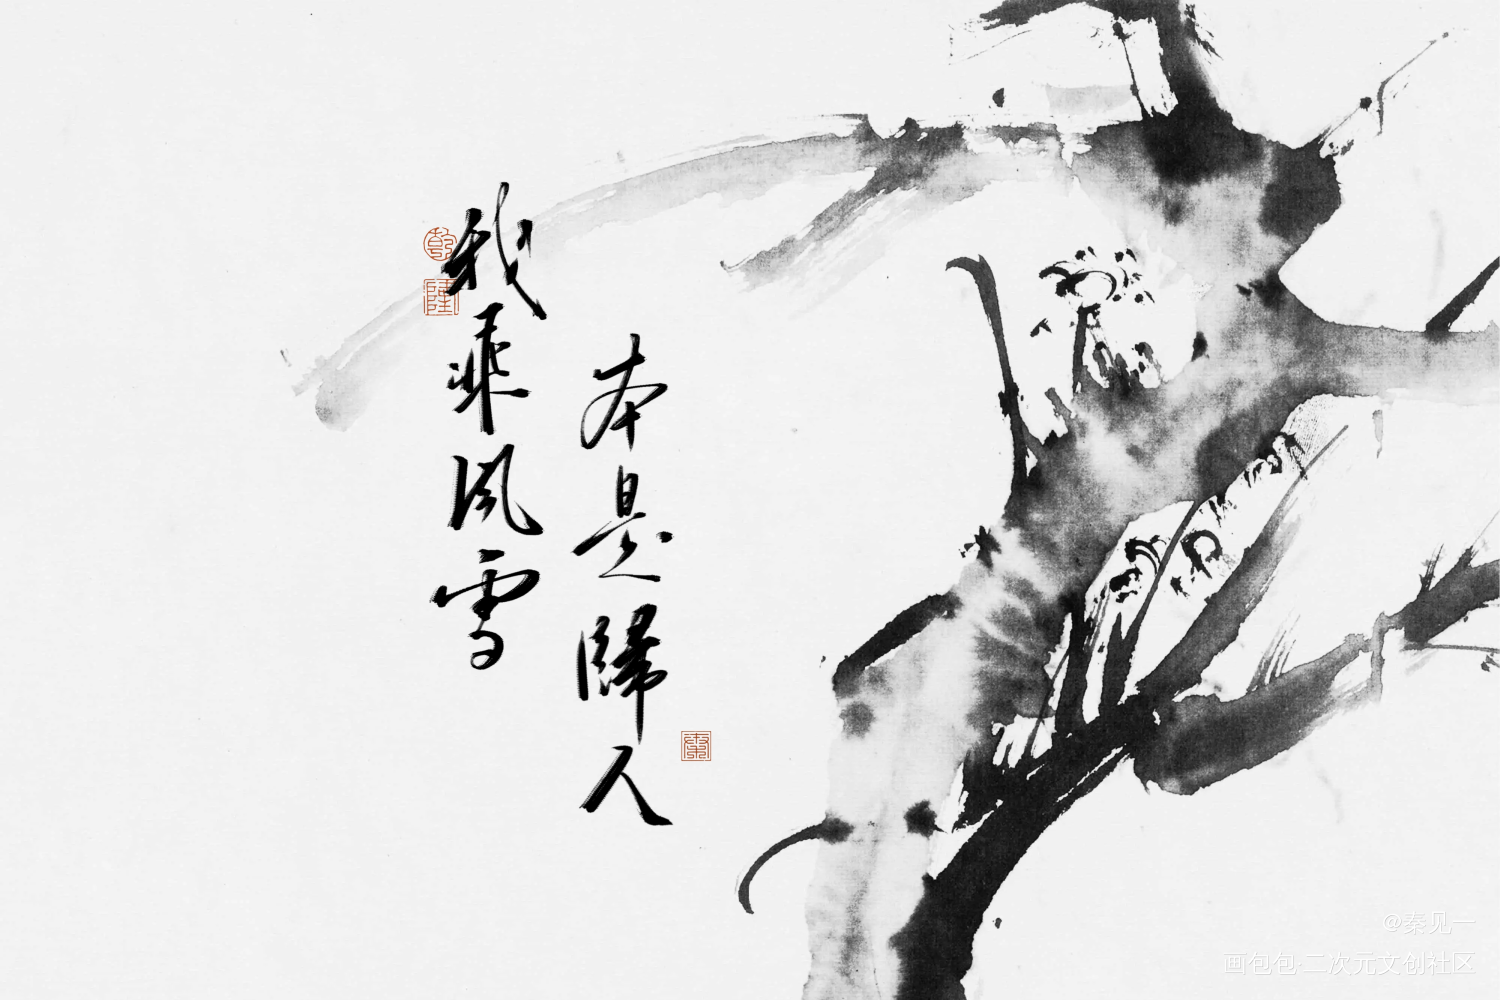 我乘风雪
本是歸人
@秦见一
画包包·二次元文创社区